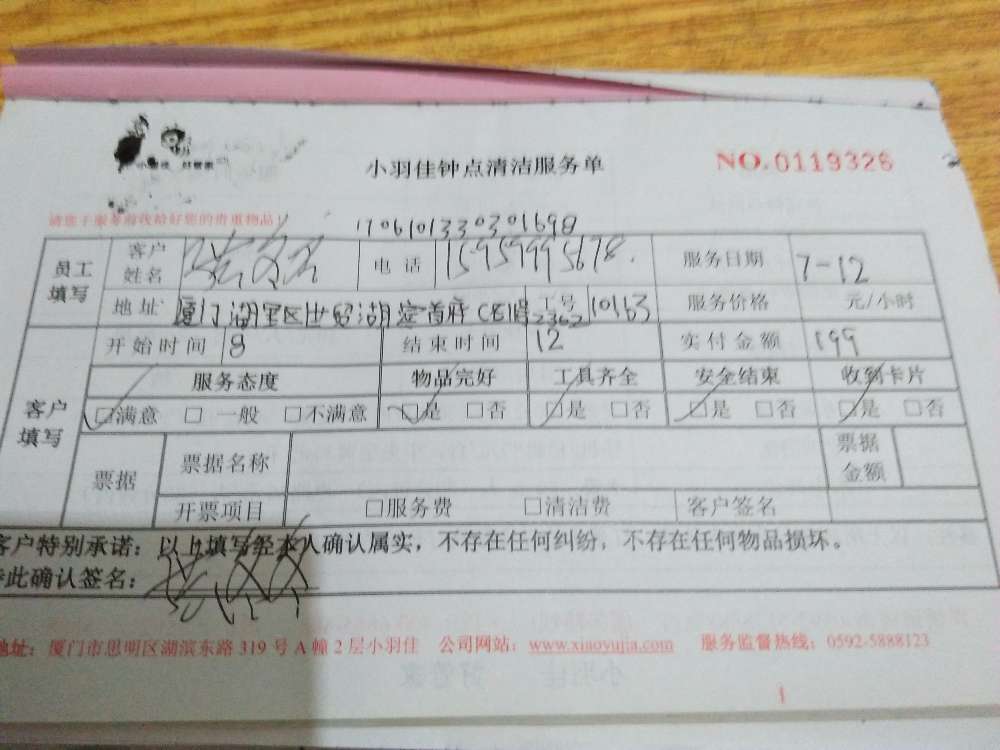 小羽佳 好管家
小羽佳钟点清洁服务单 NO.0119326
请您于服务前收给好您的贵重物品!
1706101330301698
员工填写 客户姓名 电话 15959995678. 服务日期 7-12
地址 厦门湖里区世贸湖滨首府 工号 10163 服务价格 元/小时
开始时间 8 结束时间 12 实付金额 199
客户填写 服务态度 物品完好 工具齐全 安全结束 收到卡片
□满意 □一般 □不满意 □是 □否 □是 □否 □是 □否 □是 □否
票据 票据名称 票据金额
开票项目 □服务费 □清洁费 客户签名
客户特别承诺:以上填写经本人确认属实,不存在任何纠纷,不存在任何物品损坏。
特此确认签名:
地址:厦门市思明区湖滨东路 319 号 A 幢 2 层小羽佳 公司网站:www.xiaoyujia.com 服务监督热线:0592-5888123